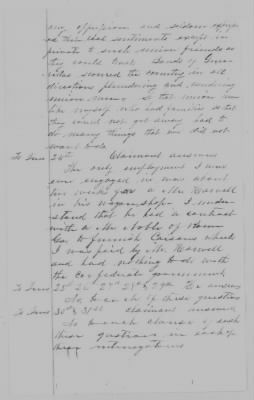 any opposition and seldom express
ed their real sentiments except in
private to such Union friends as
they could trust. Bands of Guer
rillas scoured the country in all
directions plundering and murdering
Union men. So that Union men
like myself who had families so that
they could not get away had to
do many things that we did not
want to do
To Inter 24th Claimant answers
The only employment I was
ever engaged in was about
two weeks for a Mr Howell
in his wagon shop. I under
stand that he had a contract
with a Mr Noble of Rome
Ga to furnish Caisons which
I was paid by Mr Howell
and had nothing to do with
the Confederate government
To Inter 25th 26 27th 28th & 29th He answers
No to each of these questions
To Inters 30th & 31st claimant answers
No to each clause of each
these questions in each of
these interrogatories